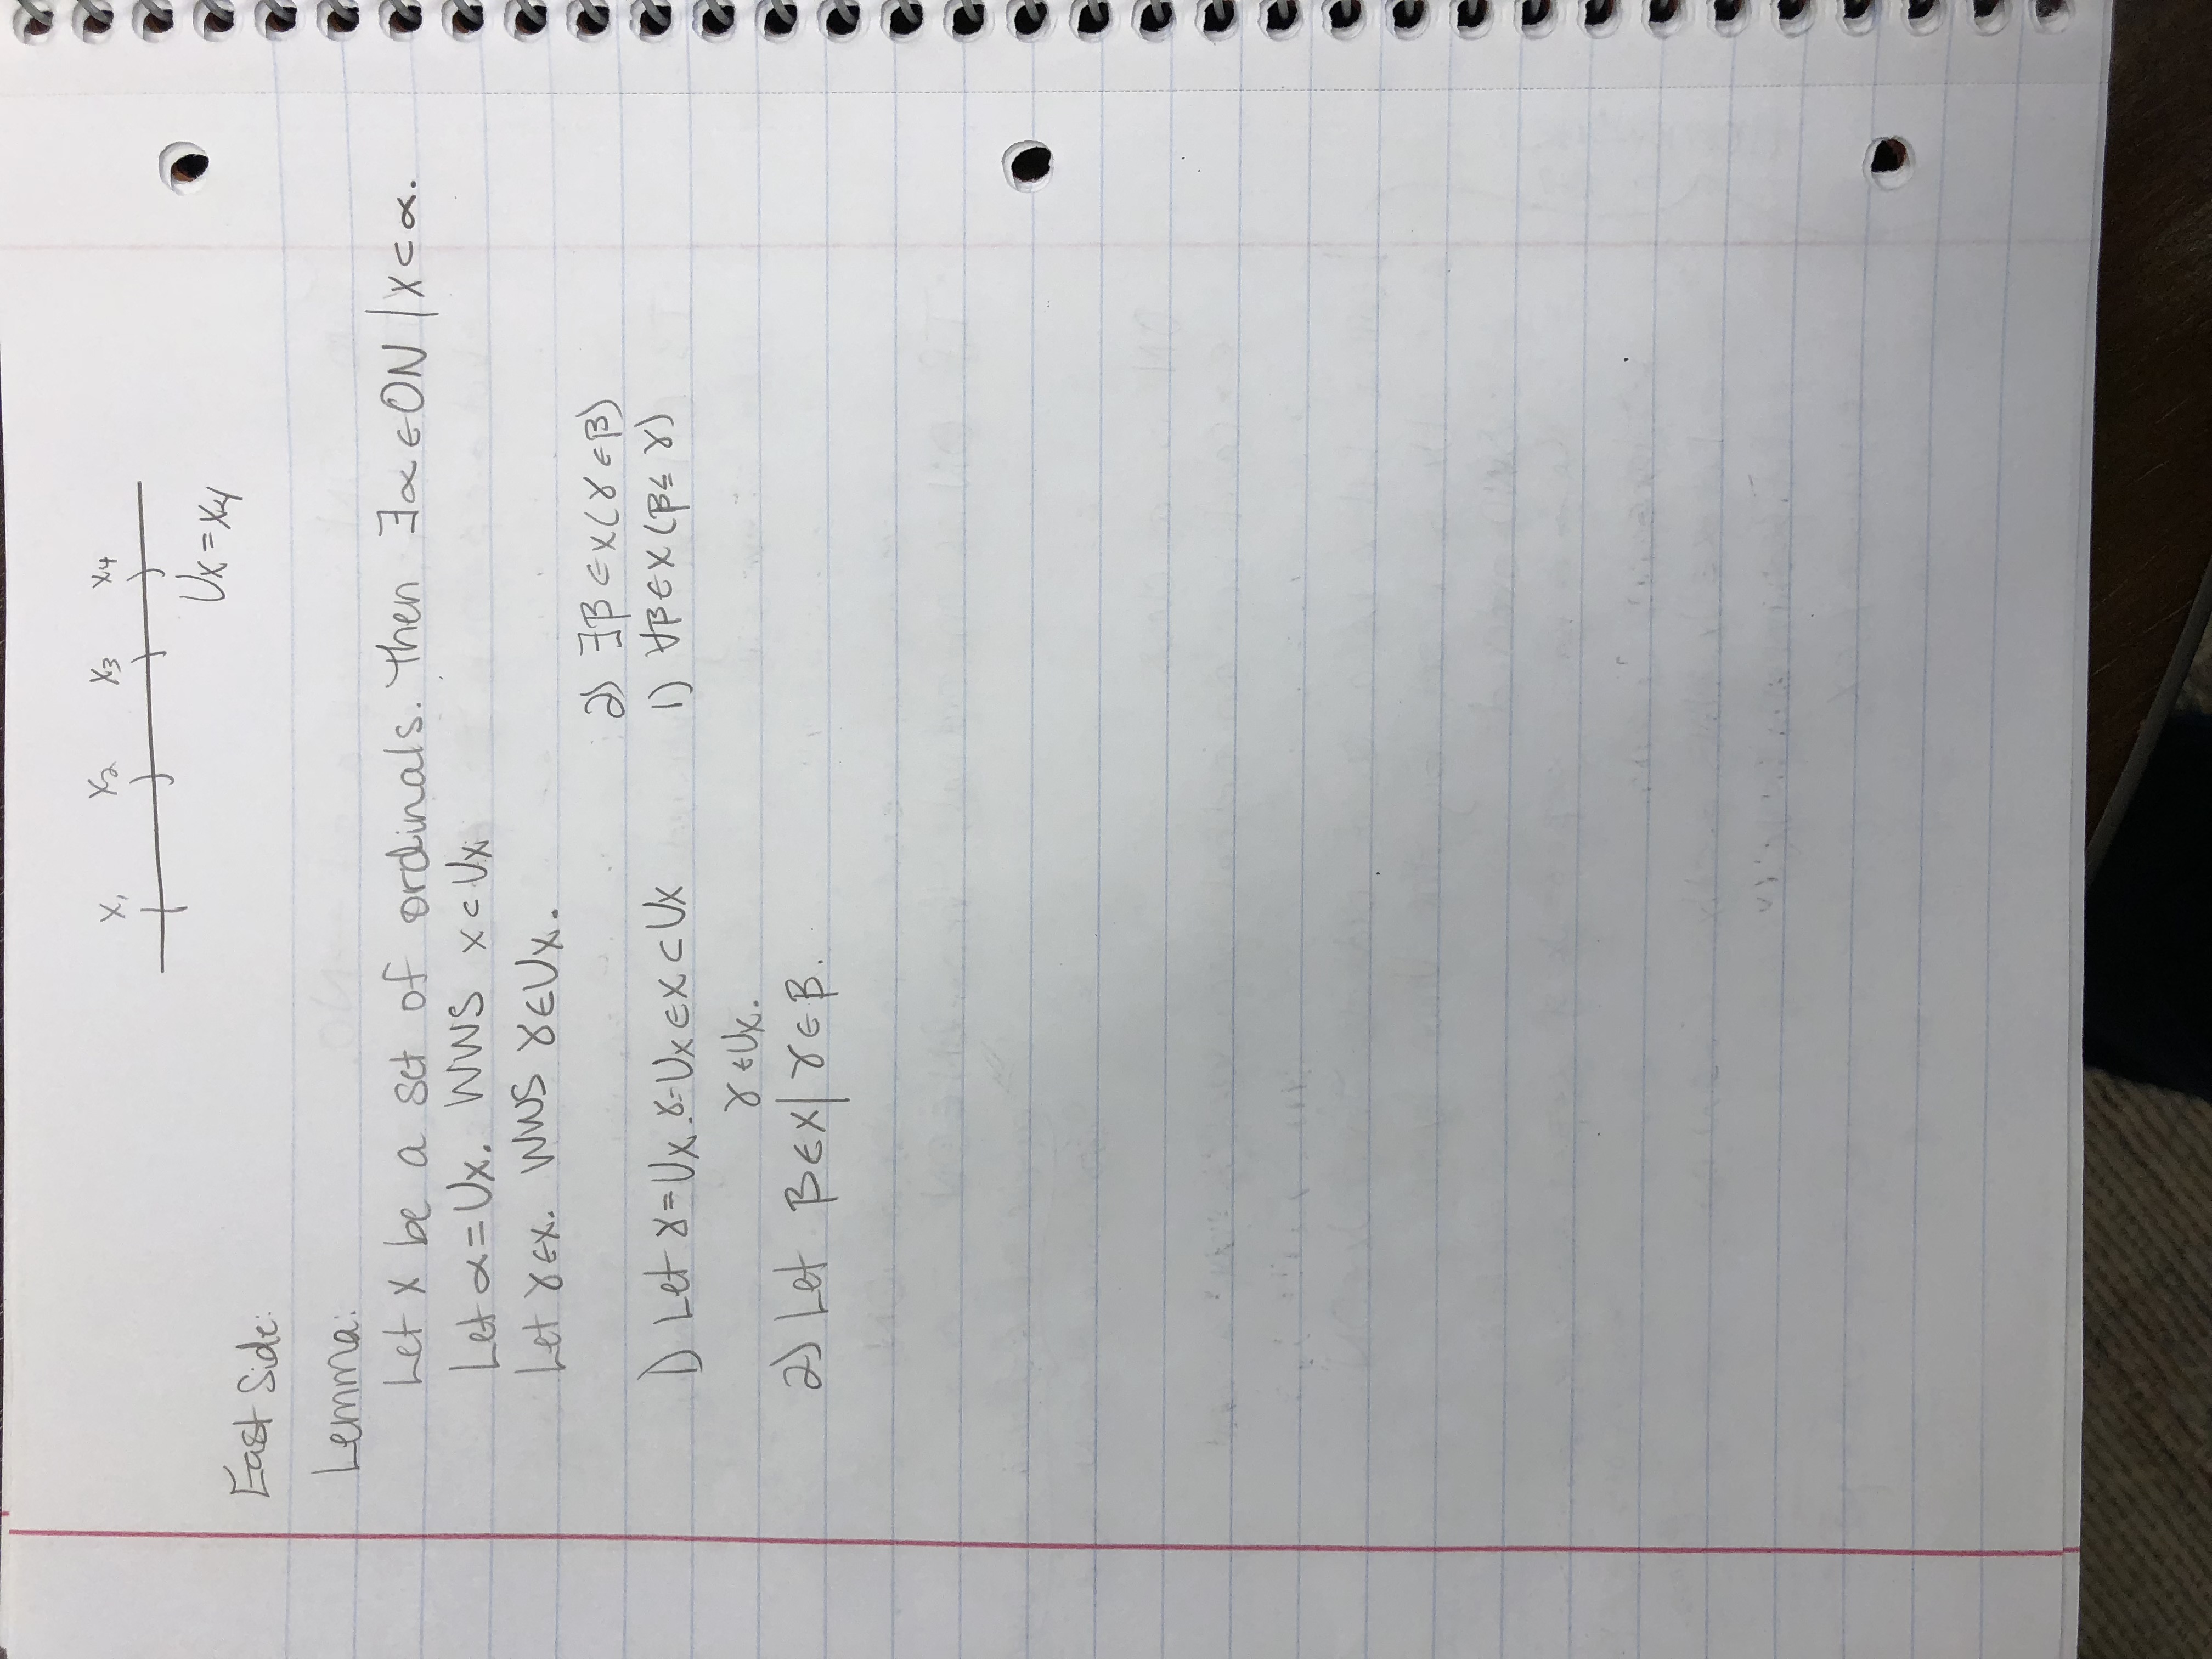 x₁ x₂ x₃ x₄
∪x = x₄
East Side:
Lemma:
Let x be a set of ordinals. Then ∃α∈ON | x⊂α.
Let α=∪x. WWS x⊂∪x
Let γ∈x. WWS γ∈∪x.
2) ∃β∈x(γ∈β)
1) Let γ=∪x. γ=∪x∈x⊂∪x 1) ∀β∈x(β≤γ)
γ∈∪x.
2) Let β∈x| γ∈β.